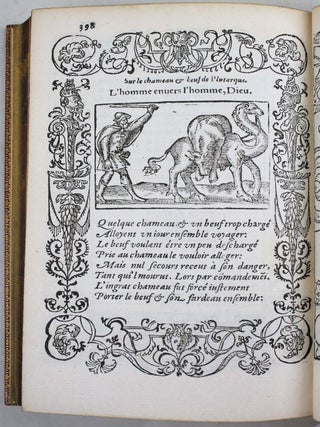 398
Sur le chameau & beuf de Plutarque.
L'homme enuers l'homme, Dieu.
Quelque chameau, & vn beuf trop chargé
Alloyent vn iour ensemble voyager:
Le beuf voulant étre vn peu deschargé
Prie au chameau le vouloir alleger:
Mais nul secours receut à son danger,
Tant qu'il mourut. Lors par cõmandemẽt
L'ingrat chameau fut forcé iustement
Porter le beuf & son fardeau ensemble: